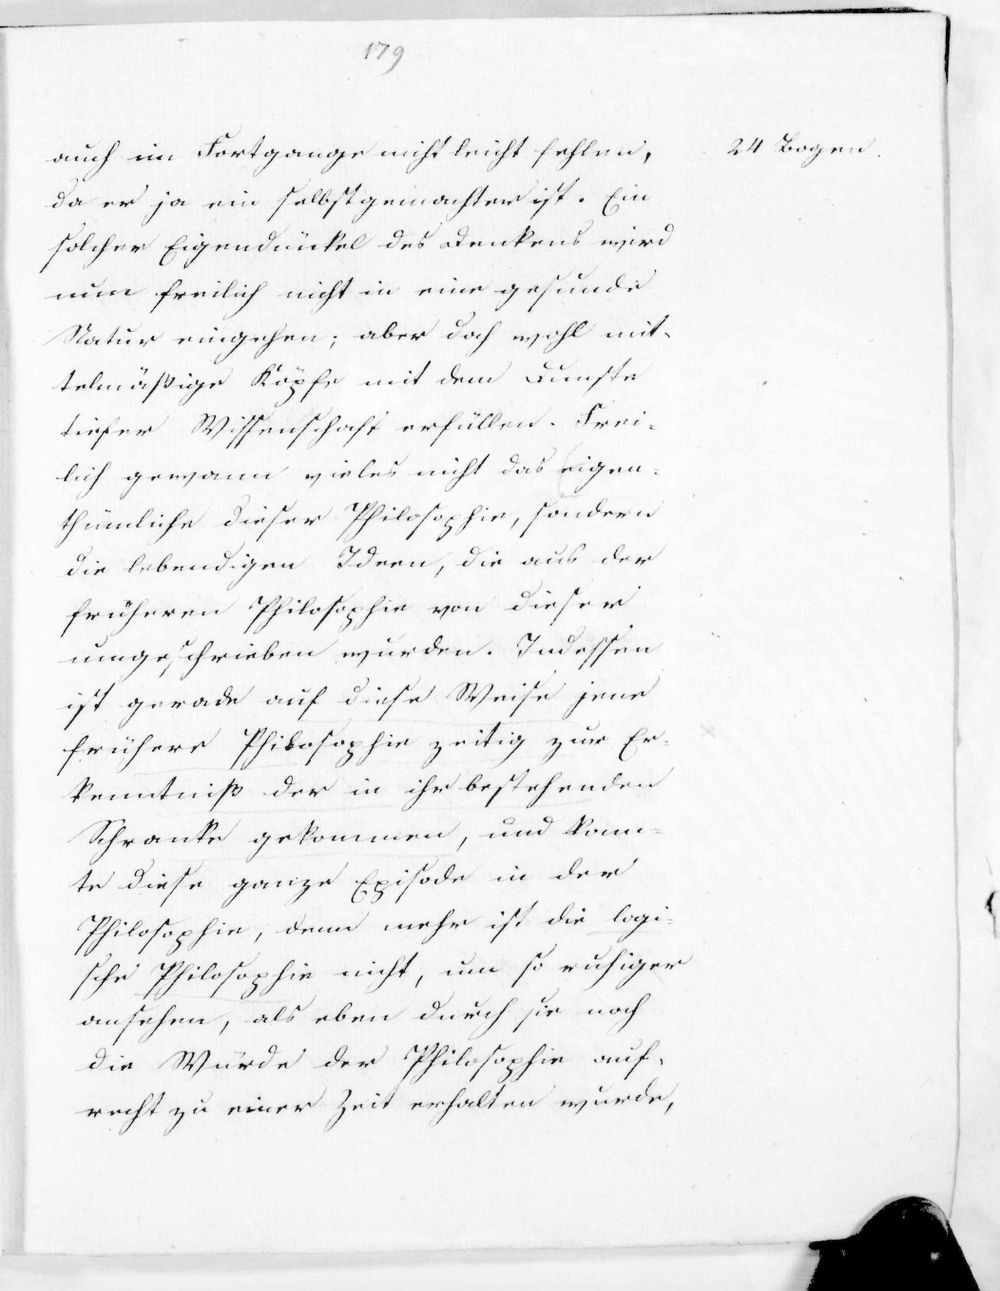 179
24 Bogen.
auch im Fortgange nicht leicht fehlen,
da er ja ein selbstgemachter ist. Ein
solcher Eigendünkel des Denkens wird
nun freilich nicht in eine gesunde
Natur eingehen; aber doch wohl mit-
telmäßige Köpfe mit dem Dunste
tiefer Wissenschaft erfüllen. Frei-
lich gewann vieles nicht das eigen-
thümliche dieser Philosophie, sondern
die lebendigen Ideen, die aus der
früheren Philosophie von dieser
umgeschrieben wurden. Indessen
ist gerade auf diese Weise jene
frühere Philosophie zeitig zur Er-
kenntniß der in ihr bestehenden
Schranke gekommen, und konn-
te diese ganze Episode in der
Philosophie, denn mehr ist die logi-
sche Philosophie nicht, um so ruhiger
ansehen, als eben durch sie noch
die Würde der Philosophie auf-
recht zu einer Zeit erhalten wurde,